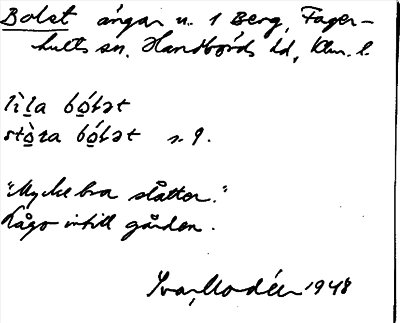 Bolet ängar u. 1 Berg, Fager-
hults sn, Handbörds hd, Klm. l.
lìla bó̲lət
stò̲ra bó̲lət s. 9.
"Mycke bra slåtter."
Lågo intill gården.
Ivar Modéer 1948